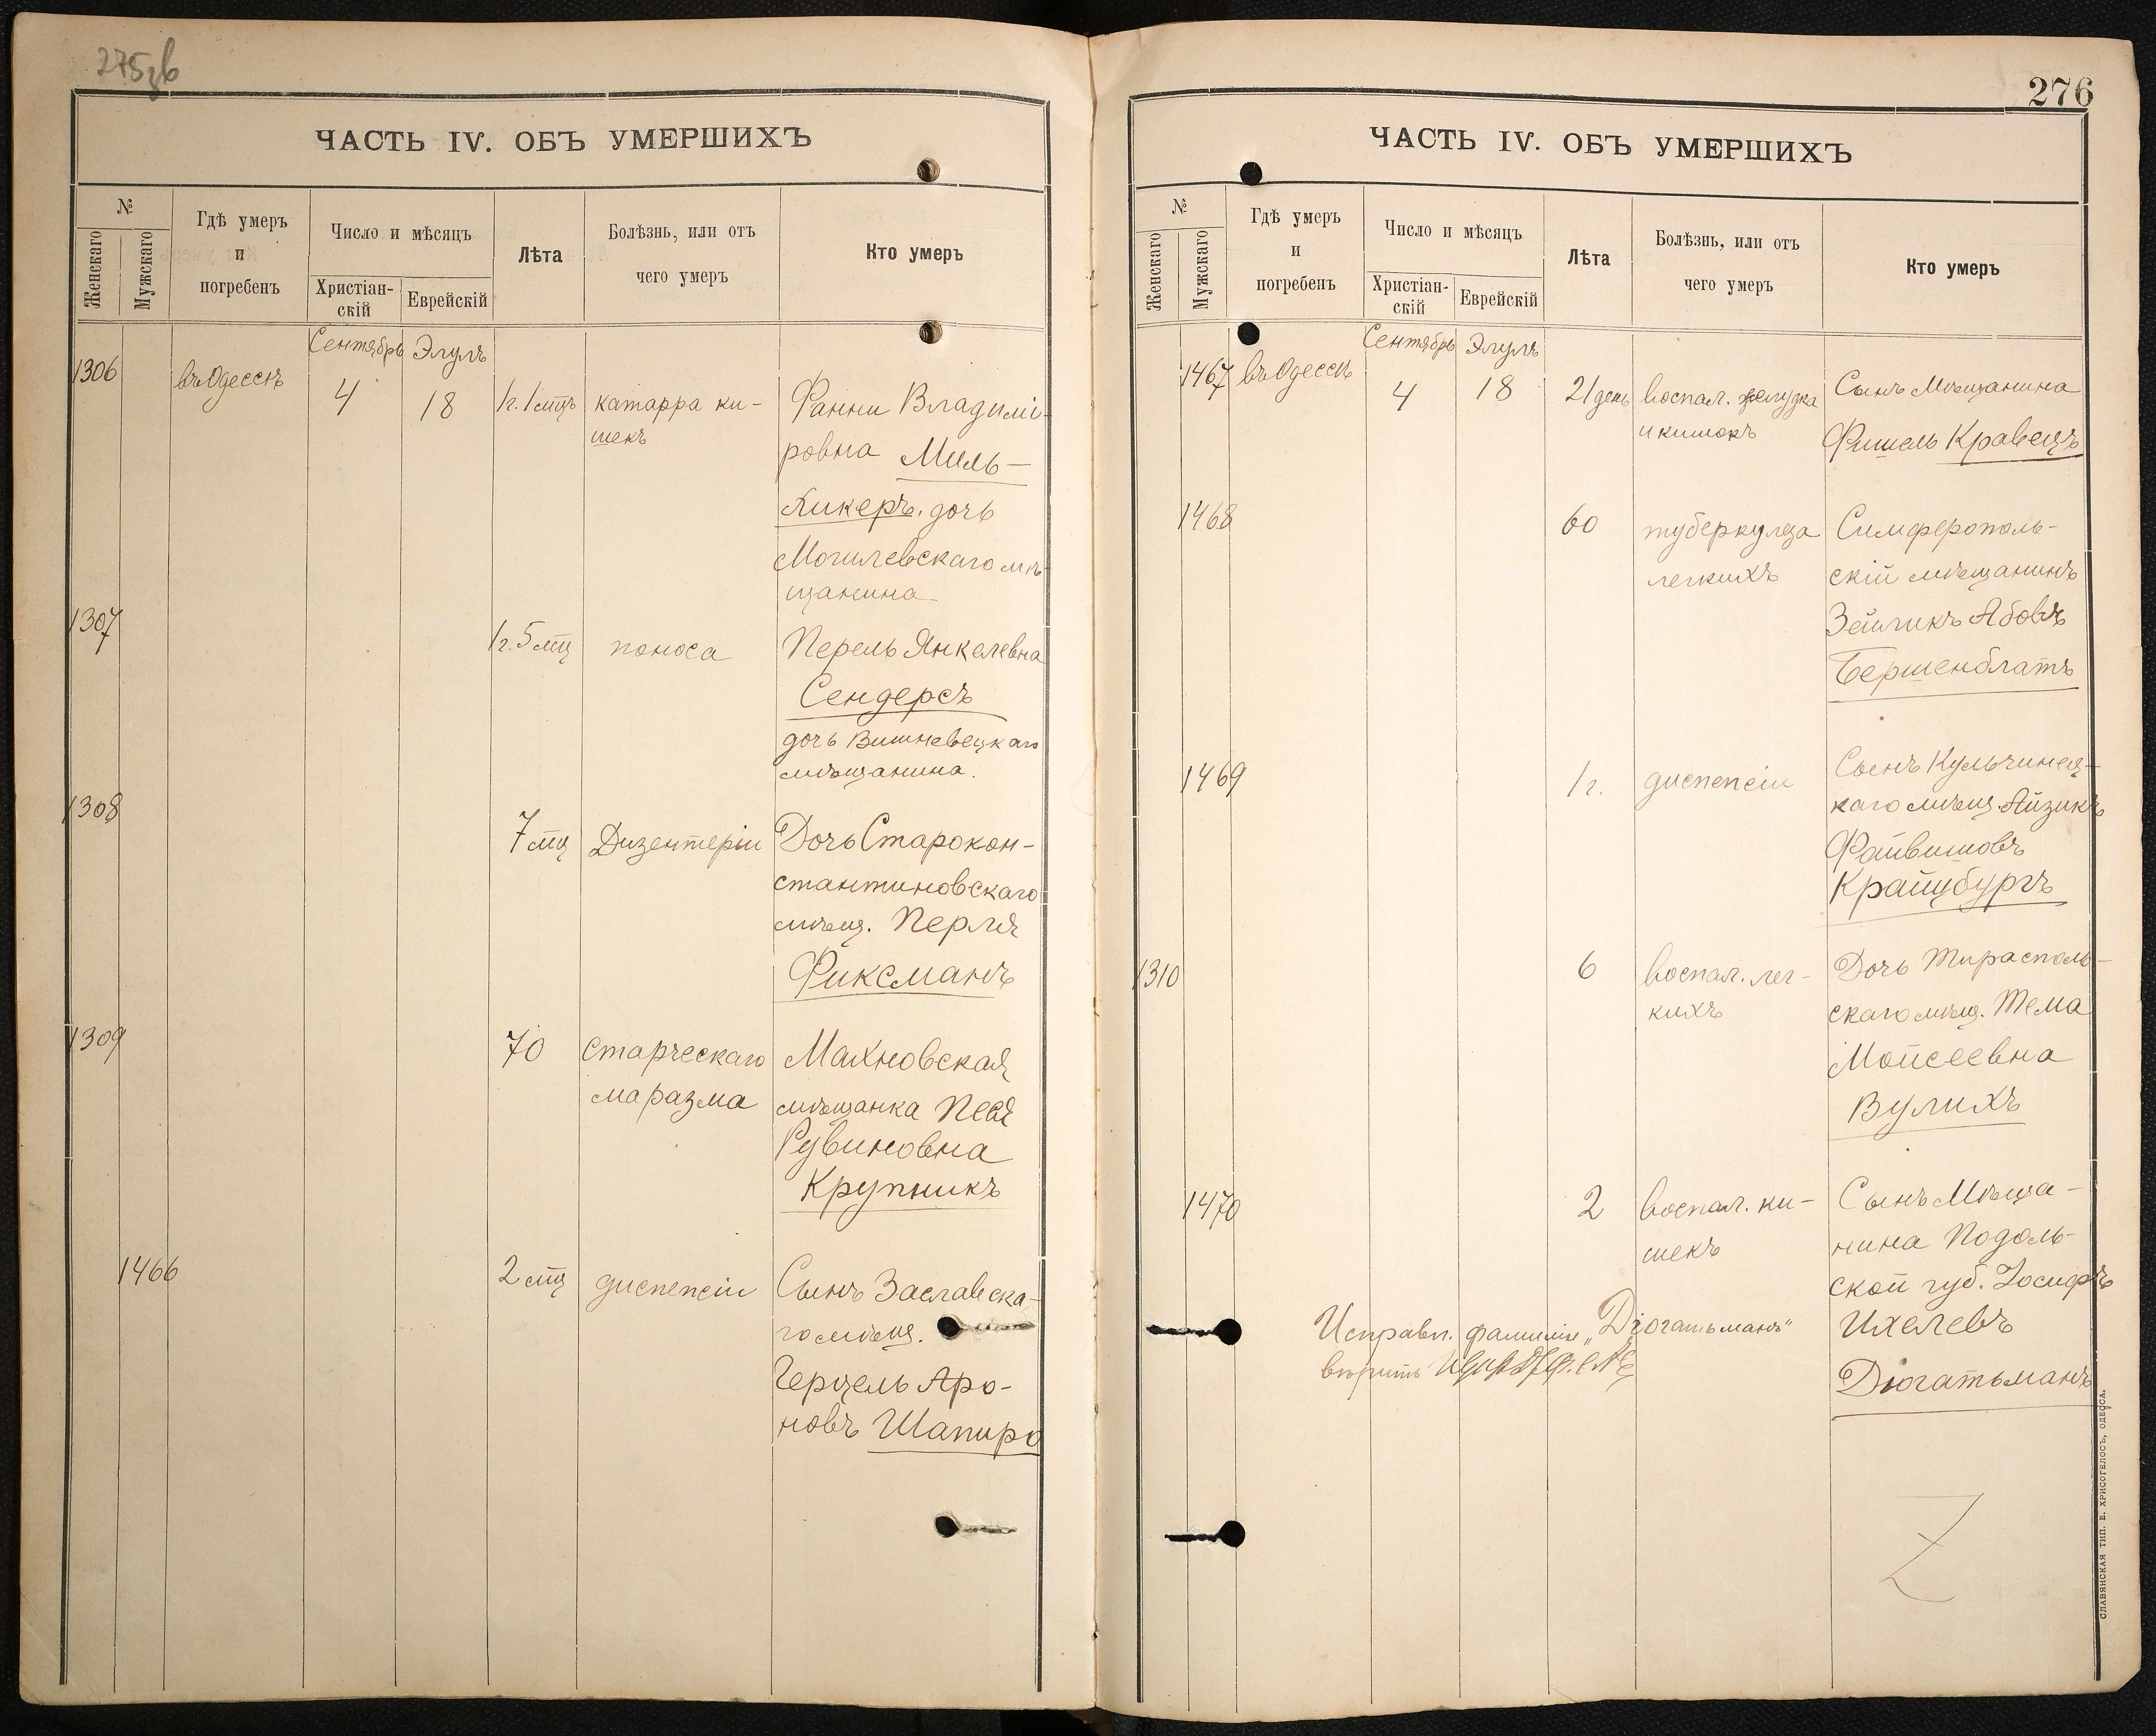 275зв
ЧАСТЬ IV. ОБЪ УМЕРШИХЪ
№
Женскаго
Мужскаго
Гдѣ умеръ
и
погребенъ
Число и мѣсяцъ
Христіан-
скій
Еврейскій
Лѣта
Болѣзнь, или отъ
чего умеръ
Кто умеръ
Сентябрь Элулъ
1306 въ Одессѣ 4 18 1г. 1 мцъ катарра ки- Фанни Владимі-
шекъ ровна Миль-
Кикеръ, дочь
Могилевскаго мѣ-
щанина
1307 1г. 5 мц поноса Перель Янкелевна
Сендерсъ
дочь Вишневецкаго
мѣщанина.
1308 7 мц Дизентеріи Дочь Старокон-
стантиновскаго
мѣщ. Перля
Фиксманъ
1309 70 старческаго Махновская
маразма мѣщанка Песя
Рувиновна
Крупникъ
1466 2 мц диспепсіи Сынъ Заславска-
го мѣщ.
Герцель Аро-
новъ Шапиро
276
ЧАСТЬ IV. ОБЪ УМЕРШИХЪ
№
Женскаго
Мужскаго
Гдѣ умеръ
и
погребенъ
Число и мѣсяцъ
Христіан-
скій
Еврейскій
Лѣта
Болѣзнь, или отъ
чего умеръ
Кто умеръ
Сентябрь Элулъ
1467 въ Одессѣ 4 18 21 день воспал. желудка Сынъ Мѣщанина
и кишокъ Фишель Кравецъ
1468 60 туберкулеза Симферополь-
легкихъ скій мѣщанинъ
Зейликъ Абовъ
Бершенблатъ
1469 1г. диспепсіи Сынъ Кульчинец-
каго мѣщ. Айзикъ
Файвишовъ
Крайцбургъ
1310 6 воспал. лег- Дочь Тирасполь-
кихъ скаго мѣщ. Тема
Мойсеевна
Вулихъ
1470 2 воспал. ки- Сынъ Мѣща-
шекъ нина Подоль-
ской губ. Іосифъ
Исправл. фамиліи „Дюгатьманъ" Ихелевъ
вѣрить
Дюгатьманъ
СЛАВЯНСКАЯ ТИП. Е. ХРИСОГЕЛОСЪ, ОДЕССА.